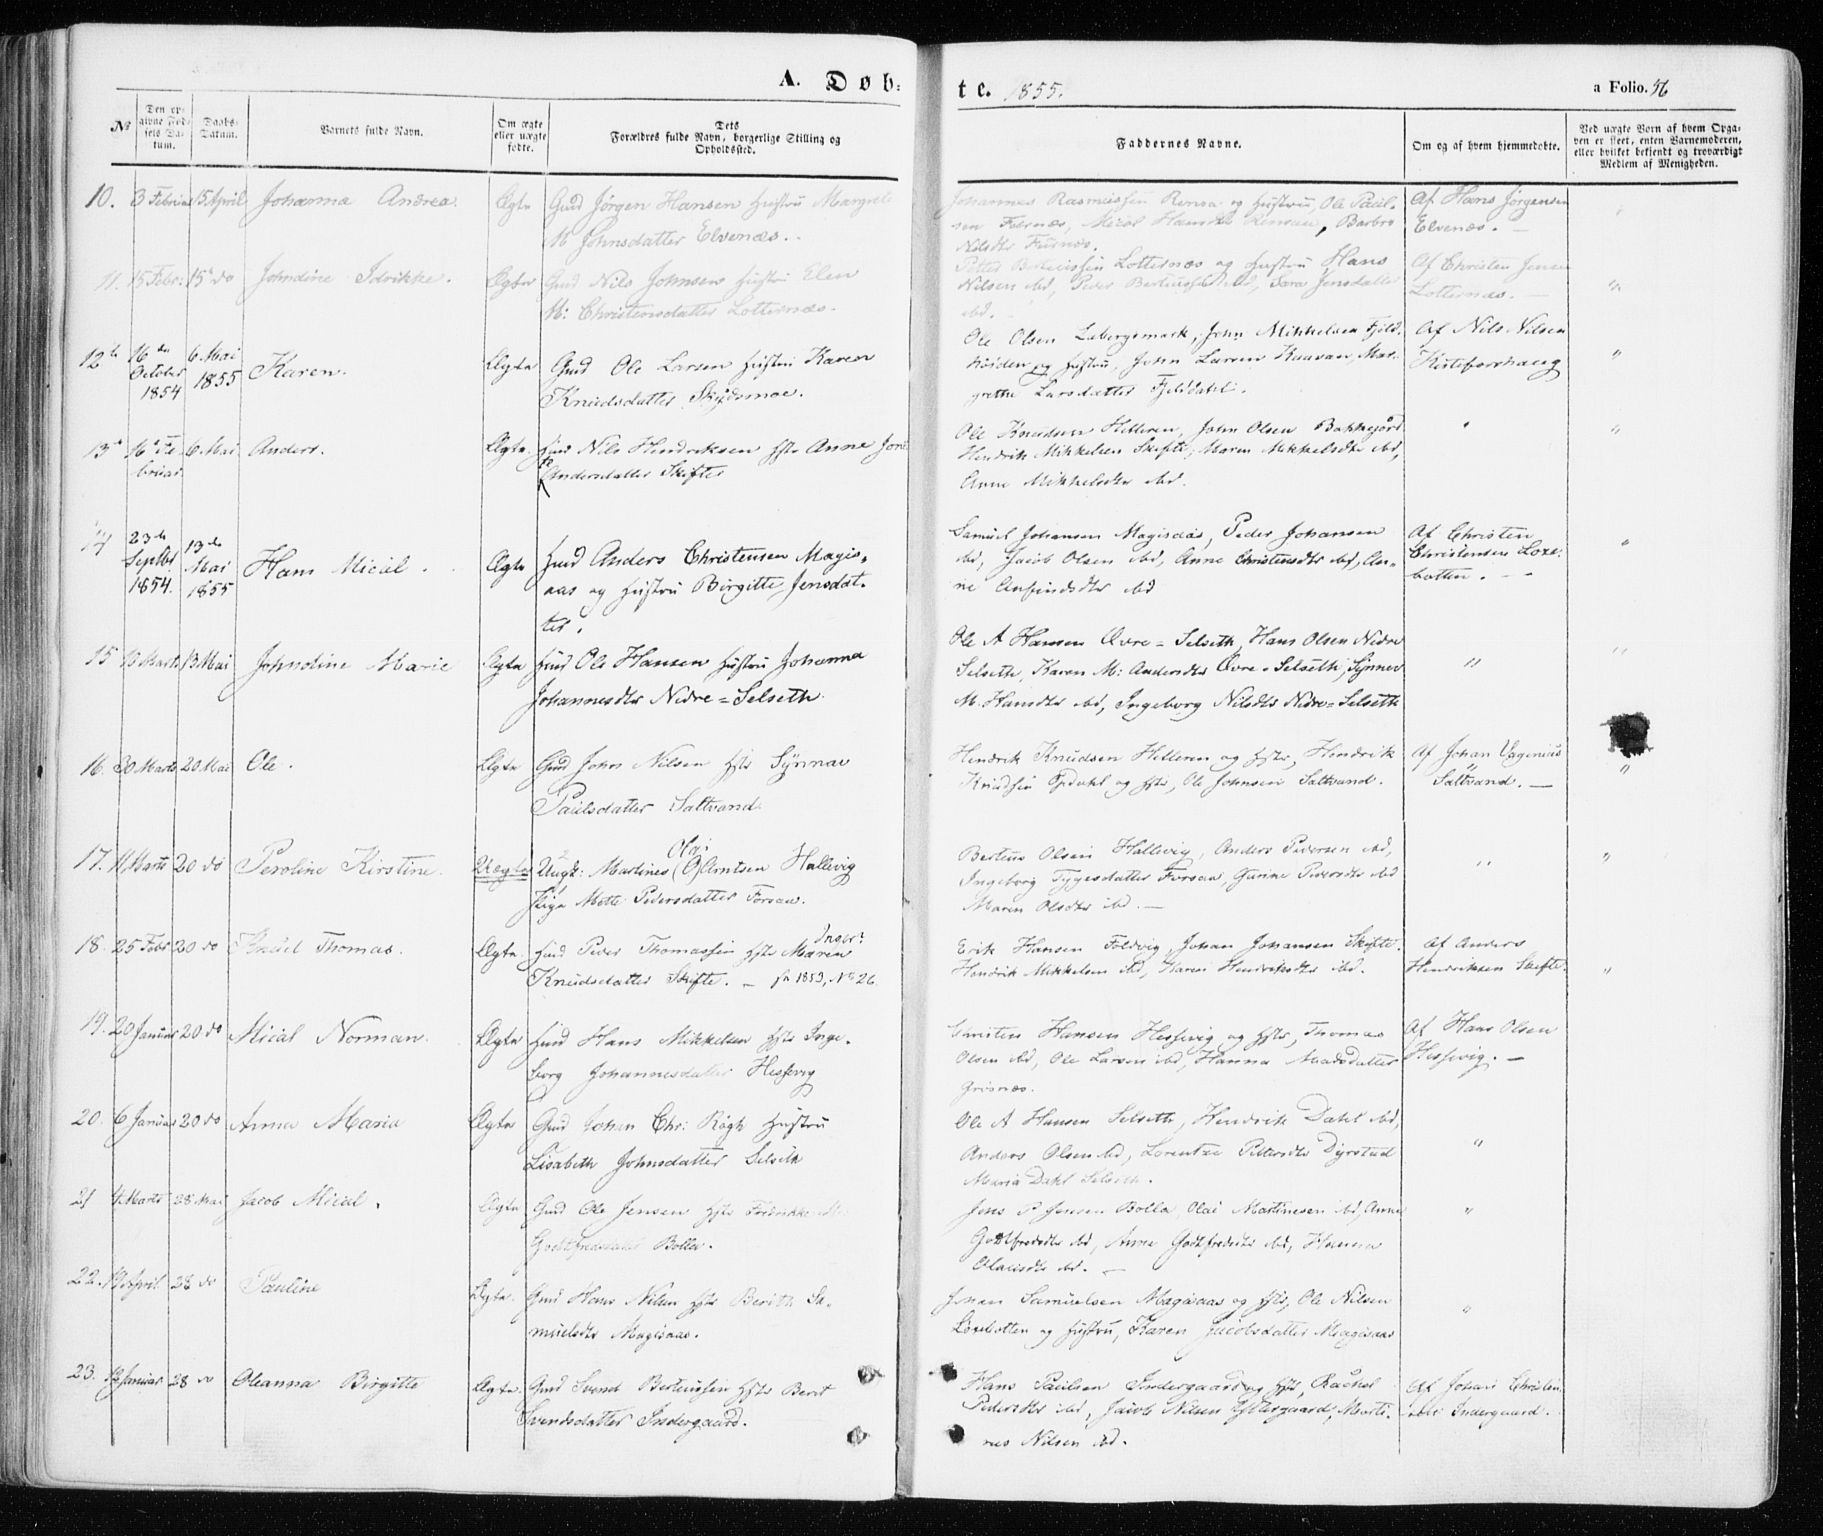 A. Døb:
te. 1855.
a Folio. 56
№
Den opgivne Fødsels Datum.
Daabs-Datum.
Barnets fulde Navn.
Om ægte eller uægte fødte.
Dets Forældres fulde Navn, borgerlige Stilling og Opholdssted.
Faddernes Navne.
Om og af hvem hjemmedøbte.
Ved uægte Børn af hvem Opgaven er skeet, enten Barnemoderen, eller hvilket bekjendt og troværdigt Medlem af Menigheden.
10. 3 Februar 15 April Johanna Andrea Ægte Gmd Jørgen Hansen Hustru Margrete
M Johnsdatter Elvenæs.
Johannes Rasmussen Rensa og Hustru, Ole Paul-
sen Fuirnæs, Barbro
Nilsdtr
Af Hans Jørgensen
Elvenæs. —
11. 15 Febr: 15 do Johndine Ædrikke. Ægte Gmd Nils Johnsen Hustru Elen
M: Christensdatter Lotternæs.
Petter Berteussen Lotternæs og Hustru, Hans
Nilsen ibd, Peder Berteussen ibd, Sara Jensdatter
ibd. —
Af Christen Jensen
Lotternæs. —
"
12te 16de October 1854 6. Mai 1855 Karen. Ægte Gmd Ole Larsen Hustru Karen
Knudsdatter Skydsmoe.
Ole Olsen Labergsmark, John Mikkelsen Fjeld-
høiden og Hustru, John Larsen Mar-
grethe Larsdatter Fjelddahl.
Af Nils Nilsen
"
13 16 Februar 6 Mai Anders. Ægte Huusmd Nils Hendriksen Hstr Anne
Andersdatter Skifte
Ole Knudsen Hilleren, John Olsen Bakkejord
Hendrik Mikkelsen Skifte, Maren Mikkelsdtr ibd,
Anne Mikkelsdtr ibd.
"
"
14 23de Septbr 1854. 13de Mai 1855 Hans Micael. Ægte Huusmd Anders Christensen Magis-
aas og Hustru Birgitte Jensdat-
ter.
Samuel Johansen Magisaas, Peder Johansen
ibd, Jacob Olsen ibd, Anne Christensdtr ibd, An-
ne Anfindsdtr ibd
Af Christen
Christensen Loxe-
botten. —
"
15 13 Marts 13 Mai Johndine Marie Ægte Huusmd Ole Hansen Hustru Johanna
Johannesdtr Nedre-Selseth.
Ole A Hansen Øvre-Selseth, Hans Olsen Nedre
Selseth, Karen M: Andersdtr Øvre-Selseth, Synnev
M. Hansdtr ibd, Ingeborg Nilsdtr Nedre-Selseth
"
"
16. 20 Marts 20 Mai Ole. Ægte Gmd John Nilsen Hstr Synnav
Paulsdatter Saltvand.
Hendrik Knudsen Hilleren og Hstr, Hendrik
Knudsen og Hstr, Ole Johnsen Saltvand.
Af Johan Vagenius
Saltvand. —
"
17. 11 Marts 20 do Peroline Kirstine. Uægte Ungk: Martines (O) Olai Arntsen Hallevig
Pige Mette Pedersdatter Forsaa.
Berteus Olsen Hallevig, Anders Pedersen ibd,
Ingeborg Tygesdatter Forsaa, Gurine Pedersdtr ibd
Maren Olsdtr ibd. —
"
"
18. 25 Febr 20 do Knud Thomas. Ægte. Huusmd Peder Thomassen Hstr Maren Inger?
Knudsdatter Skifte. — fr 1853, № 26.
Erik Hansen Foldvig, Johan Johansen Skifte
Hendrik Mikkelsen ibd, Karen Hendriksdtr ibd.
Af Anders
Hendriksen Skifte.
"
19. 20 Januar 20 do Mical Norman. Ægte Huusmd Hans Mikkelsen Hstr Inge-
borg Johannesdatter Hessevig
Christen Hansen Hessevig og Hstr, Thomas
Olsen ibd, Ole Larsen ibd, Hanna Madsdatter
Grønnæs.
Af Hans Olsen
Hessevig. —
20. 6 Januar 20 do Anna Maria Ægte Gmd Johan Chr: Røgh Hustru
Lisabeth Johnsdatter Selseth
Ole A Hansen Selseth, Hendrik Dahl ibd,
Anders Olsen ibd, Lorentze Pettersdtr Dyrstad
Maria Dahl Selseth.
"
21 4 Marts 28 Mai Jacob Micael. Ægte Gmd Ole Jensen Hstr Fredrikke
Godtfredsdatter Bolla.
Jens P Jensen Bolla, Olai Martinesen ibd, Anne
Godtfredsdtr ibd, Anne Godtfredsdtr ibd, Hanna
Olausdtr ibd. —
"
22. 19 April 28 do Pauline Ægte. Gmd Hans Nilsen Hstr Berith Sa-
muelsdtr Magisaas.
Johan Samuelsen Magisaas og Hstr, Ole Nilsen
Loxebotten og Hustru, Karen Jacobsdatter Magisaas
"
23. 12 Januar 28 do Oleanna Birgitte Ægte. Gmd Svend Berteussen Hstr Berit
Svendsdatter Indergaard.
Hans Paulsen Indergaard og Hstr, Rachel
Pedersdtr ibd, Jacob Nilsen Yttergaard, Marti-
nes Nilsen ibd.
Af Johan Christen
Indergaard.